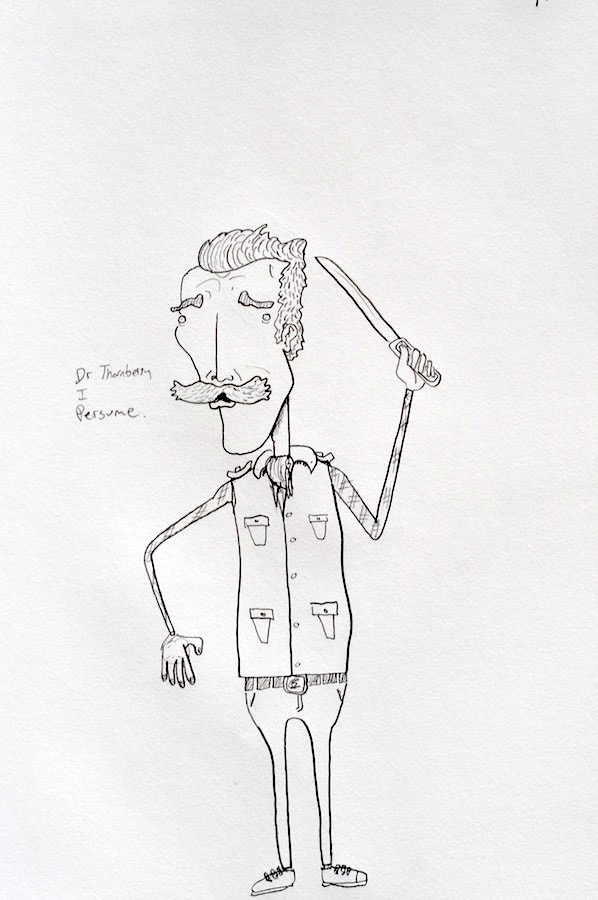 Dr Thornberry
I
Persume.